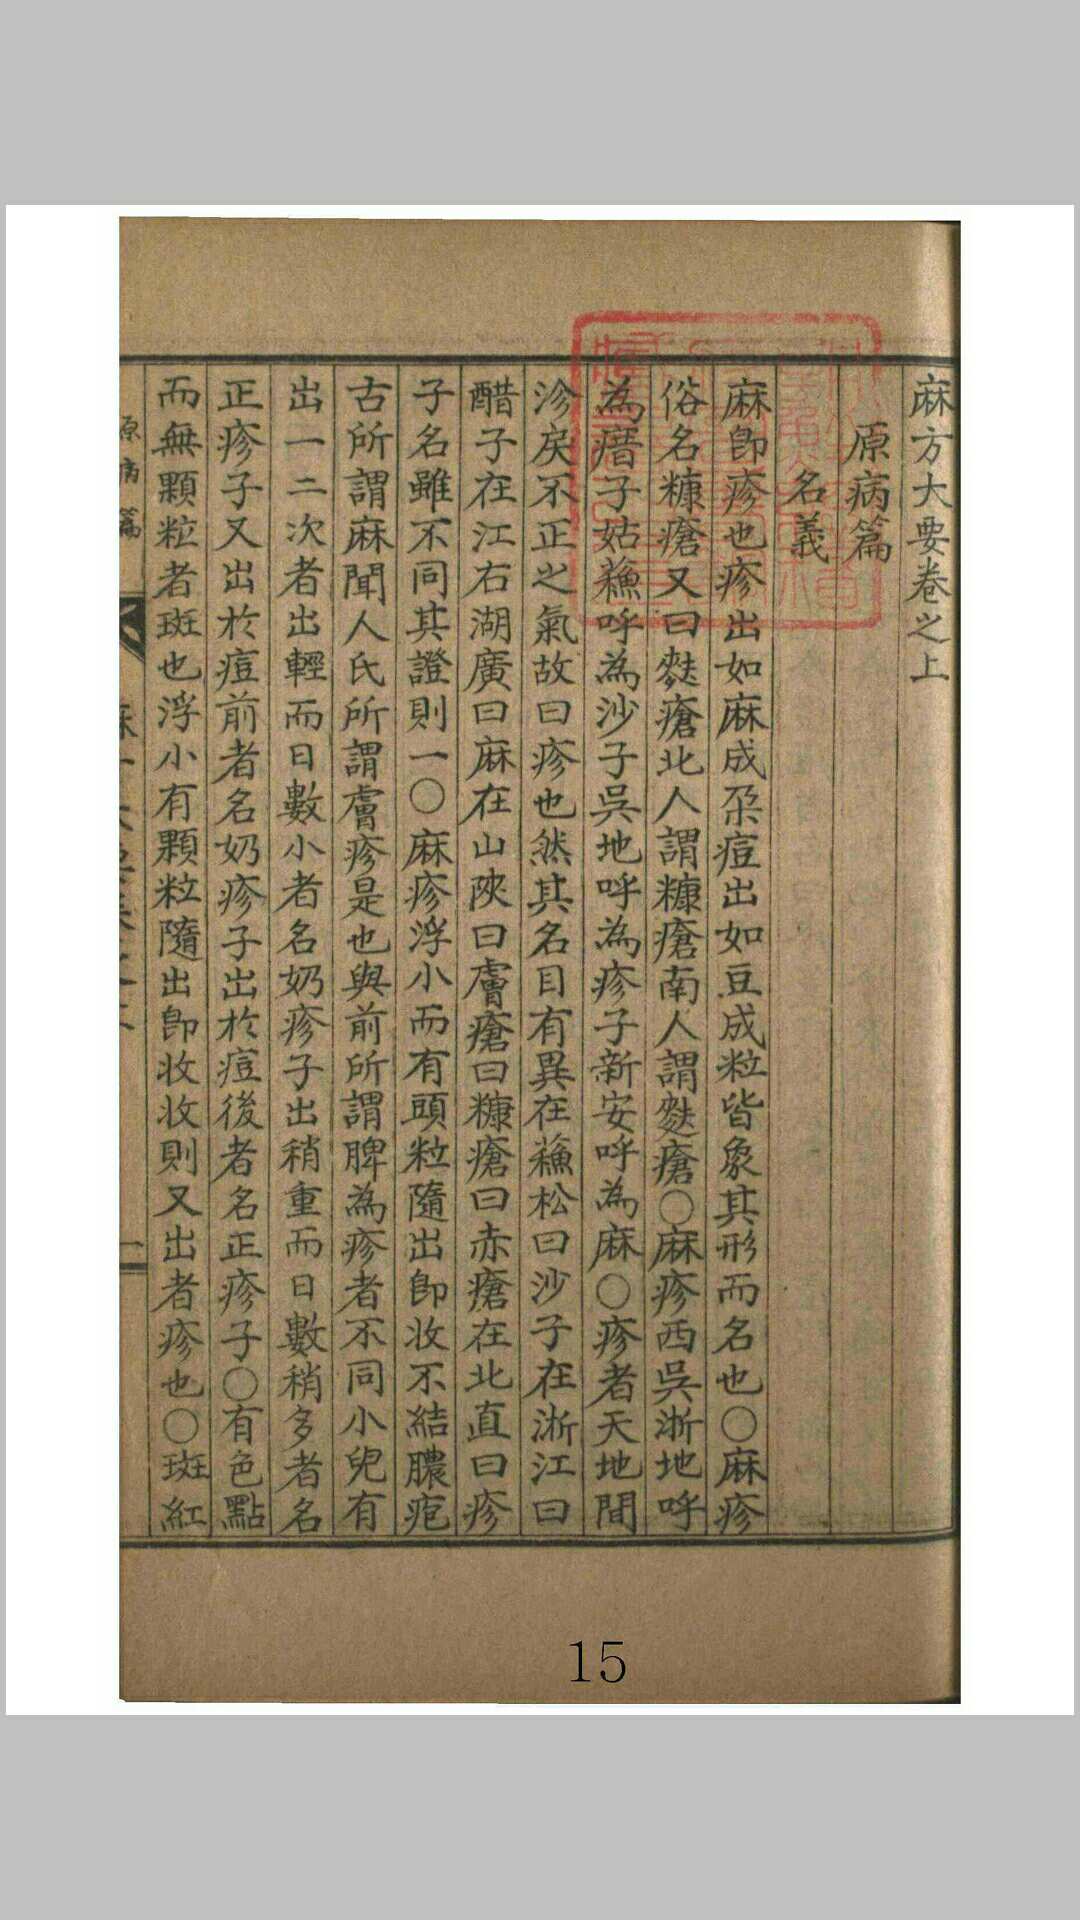 麻方大要卷之上
原病篇
名義
麻卽疹也疹出如麻成朶痘出如豆成粒皆象其形而名也○麻疹
俗名糠瘡又曰麩瘡北人謂糠瘡南人謂麩瘡○麻疹西吳浙地呼
為㾦子姑蘓呼為沙子吳地呼為疹子新安呼為麻○疹者天地間
沴戾不正之氣故曰疹也然其名目有異在蘓松曰沙子在浙江曰
醋子在江右湖廣曰麻在山陝曰膚瘡曰糠瘡曰赤瘡在北直曰疹
子名雖不同其證則一○麻疹浮小而有頭粒隨出卽收不結膿疱
古所謂麻聞人氏所謂膚疹是也與前所謂脾為疹者不同小兒有
出一二次者出輕而日數小者名奶疹子出稍重而日數稍多者名
正疹子又出於痘前者名奶疹子出於痘後者名正疹子○有色點
而無顆粒者斑也浮小有顆粒隨出卽收收則又出者疹也○斑紅
原病篇
一
15